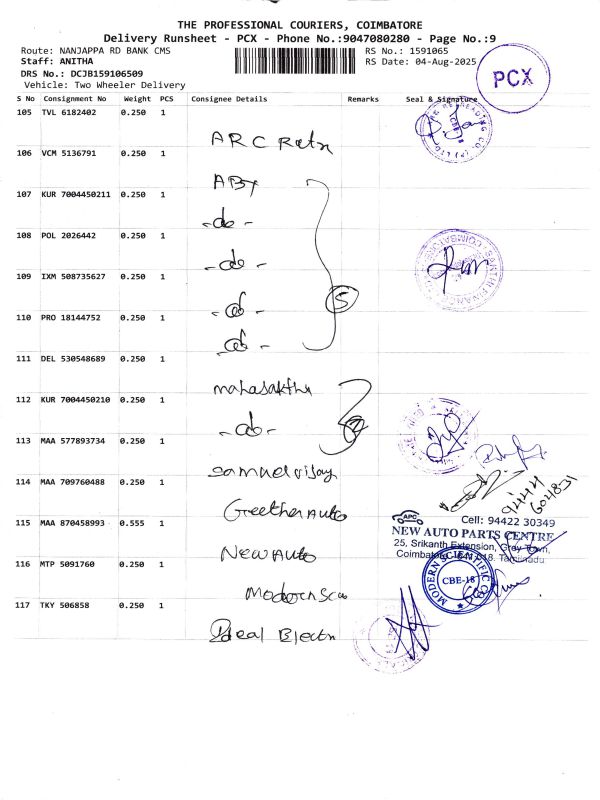 THE PROFESSIONAL COURIERS, COIMBATORE
Delivery Runsheet - PCX - Phone No.:9047080280 - Page No.:9
Route: NANJAPPA RD BANK CMS
RS No.: 1591065
Staff: ANITHA
RS Date: 04-Aug-2025
DRS No.: DCJB159106509
Vehicle: Two Wheeler Delivery
PCX
S No Consignment No Weight PCS Consignee Details Remarks Seal & Signature
105 TVL 6182402 0.250 1
ARC Retn
106 VCM 5136791 0.250 1
ABT
107 KUR 7004450211 0.250 1
-do-
108 POL 2026442 0.250 1
-do-
109 IXM 508735627 0.250 1
-do-
5
110 PRO 18144752 0.250 1
-do-
111 DEL 530548689 0.250 1
mahasakthi
112 KUR 7004450210 0.250 1
-do-
113 MAA 577893734 0.250 1
Samuel vijay
114 MAA 709760488 0.250 1
Greether Auto
115 MAA 870458993 0.555 1
New Auto
APC
Cell: 94422 30349
NEW AUTO PARTS CENTRE
25, Srikanth Extension, Grey Town,
Coimbatore - 641 018. Tamilnadu
116 MTP 5091760 0.250 1
Modern Scie
MODERN SCIENTIFIC CO
CBE-18
117 TKY 506858 0.250 1
Ideal Electn